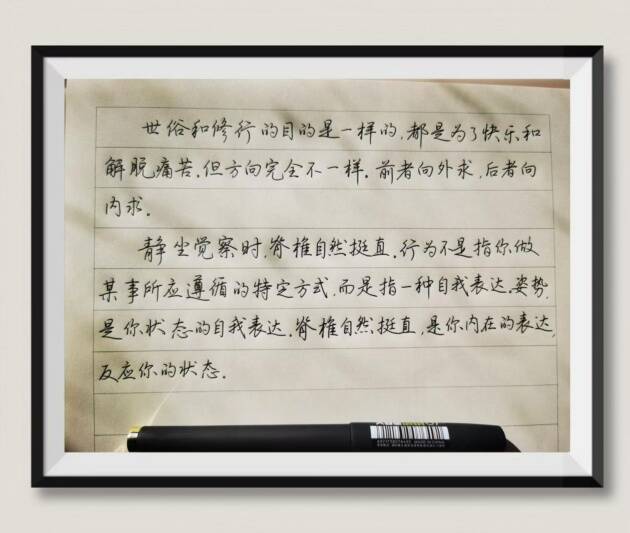 世俗和修行的目的是一样的,都是为了快乐和
解脱痛苦.但方向完全不一样.前者向外求,后者向
内求.
静坐觉察时,脊椎自然挺直.行为不是指你做
某事所应遵循的特定方式,而是指一种自我表达.姿势,
是你状态的自我表达.脊椎自然挺直,是你内在的表达,
反应你的状态.